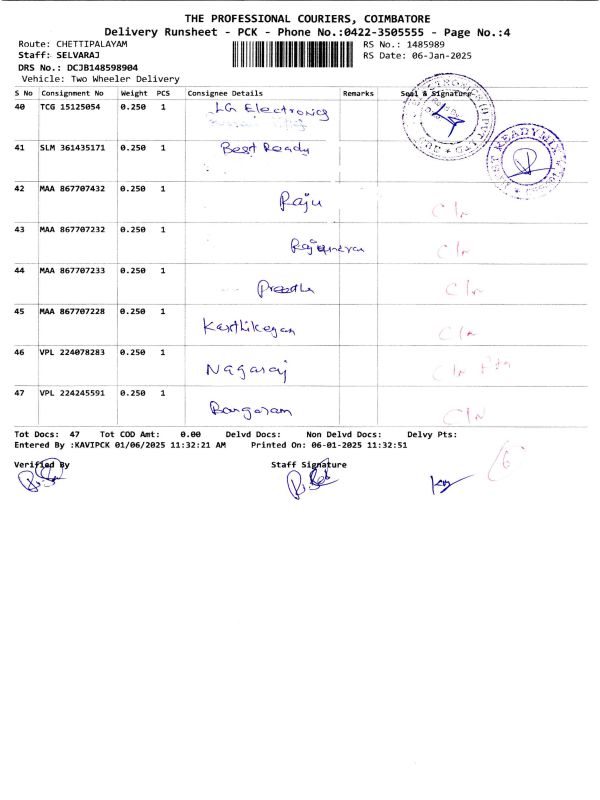 THE PROFESSIONAL COURIERS, COIMBATORE
Delivery Runsheet - PCK - Phone No.:0422-3505555 - Page No.:4
Route: CHETTIPALAYAM RS No.: 1485989
Staff: SELVARAJ RS Date: 06-Jan-2025
DRS No.: DCJB148598904
Vehicle: Two Wheeler Delivery
S No Consignment No Weight PCS Consignee Details Remarks Seal & Signature
40 TCG 15125054 0.250 1 LG Electronics
41 SLM 361435171 0.250 1 Best Ready
42 MAA 867707432 0.250 1 Raju
43 MAA 867707232 0.250 1
44 MAA 867707233 0.250 1 Preetha
45 MAA 867707228 0.250 1 Karthikeyan
46 VPL 224078283 0.250 1 Nagaraj
47 VPL 224245591 0.250 1 Rangaram
Tot Docs: 47 Tot COD Amt: 0.00 Delvd Docs: Non Delvd Docs: Delvy Pts:
Entered By :KAVIPCK 01/06/2025 11:32:21 AM Printed On: 06-01-2025 11:32:51
Verified By Staff Signature